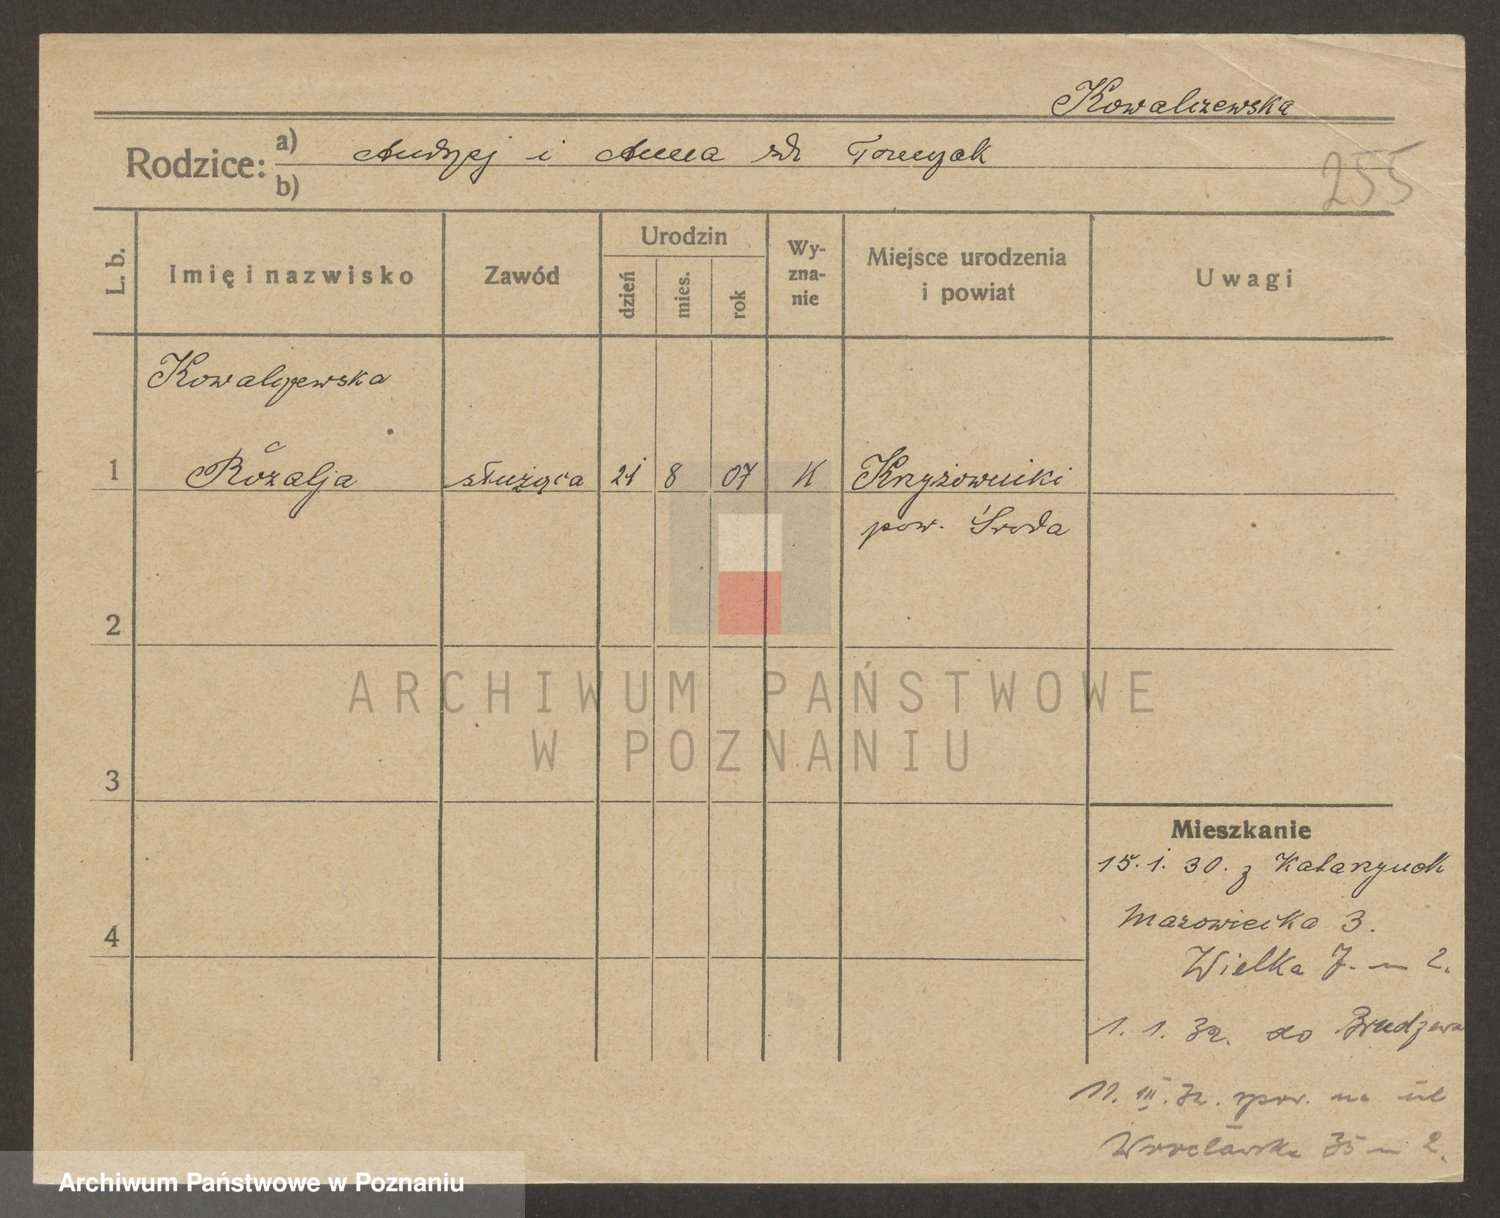 Kowalczewska
Rodzice: a) Andrzej i Anna zd Tomczak
b)
255
L. b.
Imię i nazwisko
Zawód
Urodzin
dzień
mies.
rok
Wy-
zna-
nie
Miejsce urodzenia
i powiat
Uwagi
Kowalczewska
1 Rozalja służąca 21 8 07 K Krzyżowniki
pow. Środa
2
ARCHIWUM PAŃSTWOWE
W POZNANIU
3
Mieszkanie
15. 1. 30. z Katarzynek
Mazowiecka 3.
4
Wielka 7. m 2.
1. 1. 32. do Brudzewa
11. III. 32. spow. na ul
Wrocławska 35 m 2.
Archiwum Państwowe w Poznaniu